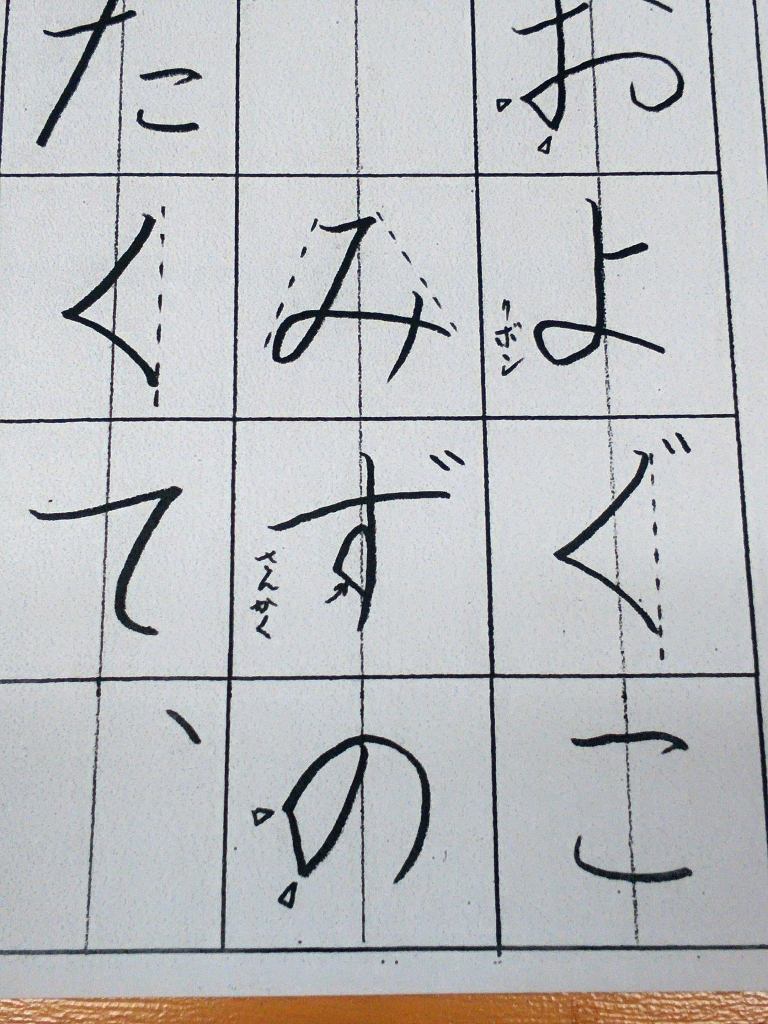 およぐこ
リボン
みずの
さんかく
たくて、